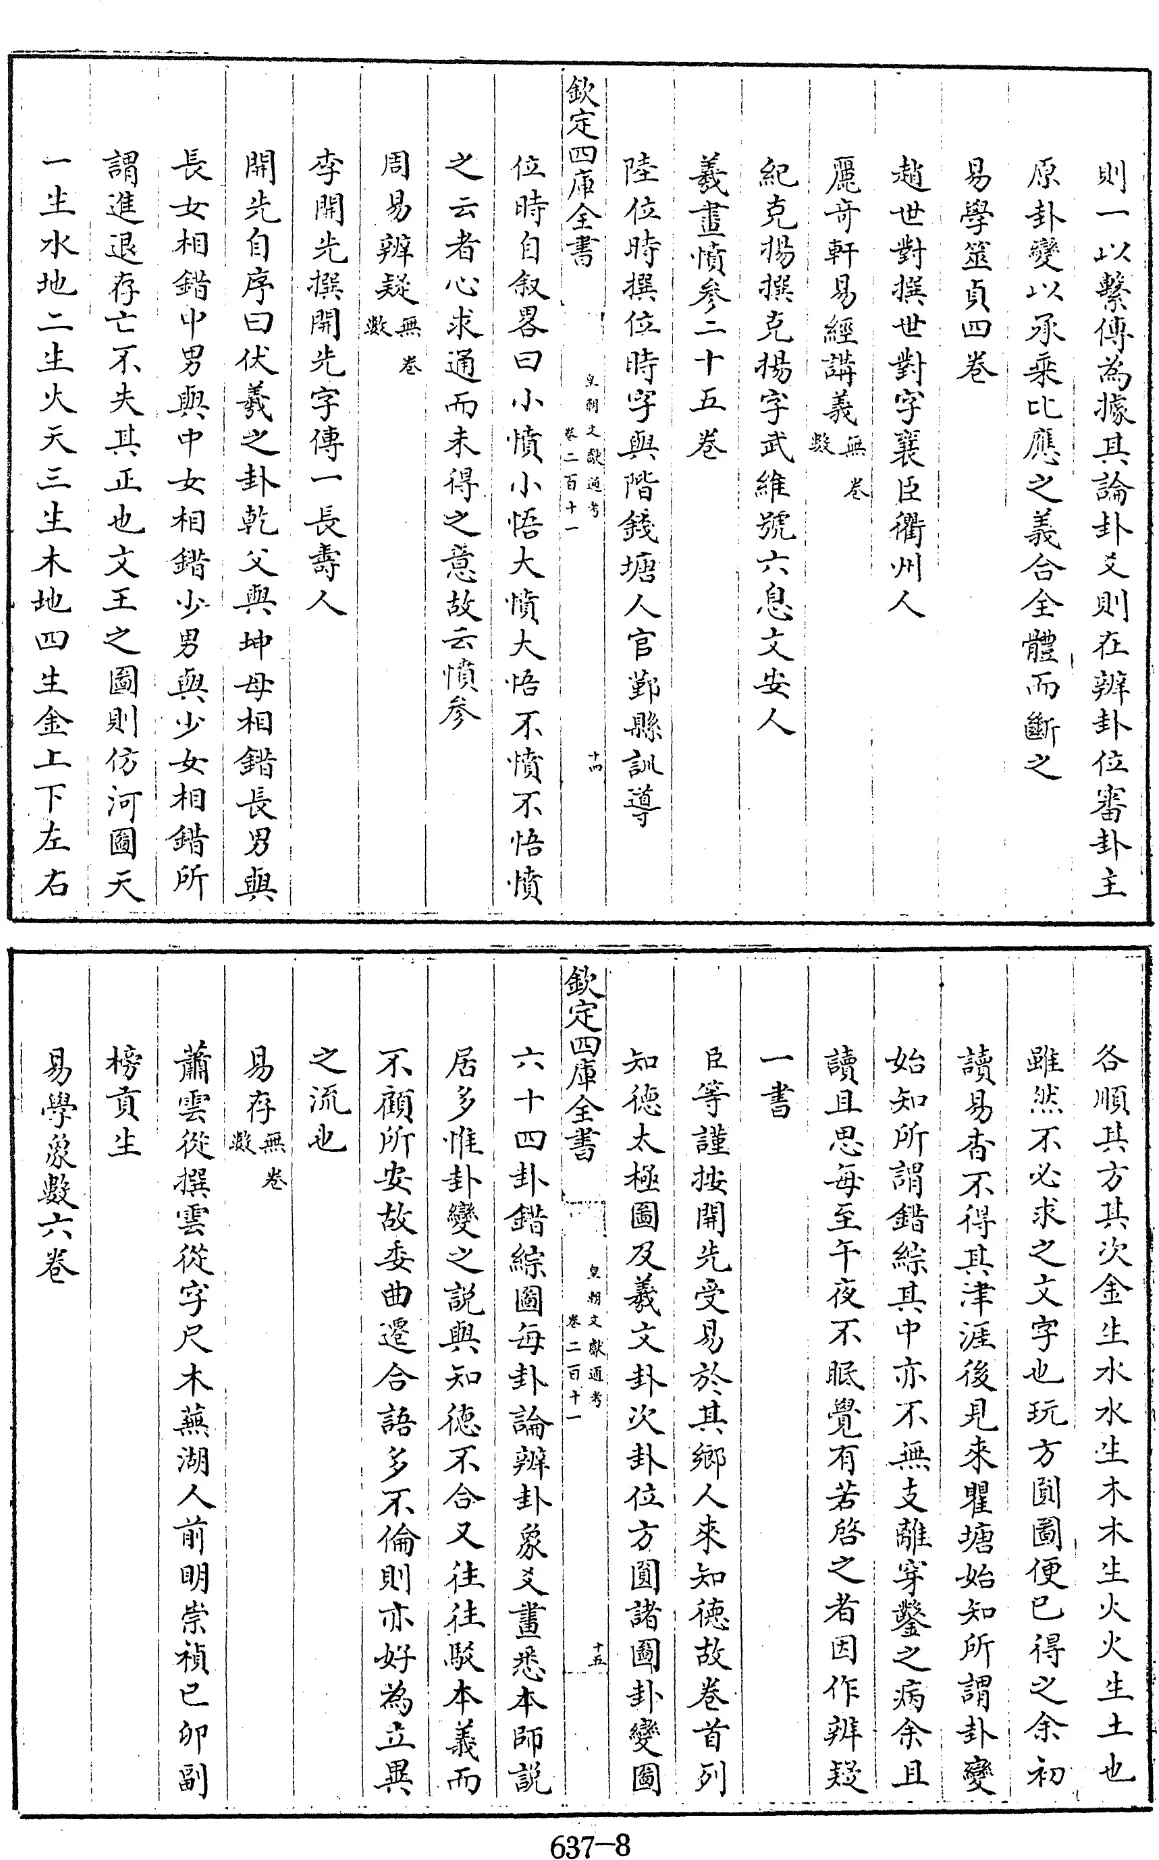 則一以繫傳為據其論卦爻則在辨卦位審卦主
原卦變以承乘比應之義合全體而斷之
易學筮貞四卷
趙世對撰世對字襄臣衢州人
麗奇軒易經講義無卷數
紀克揚撰克揚字武維號六息文安人
羲畫憤參二十五卷
陸位時撰位時字與階錢塘人官鄞縣訓導
欽定四庫全書
皇朝文獻通考
卷二百十一
十四
位時自叙畧曰小憤小悟大憤大悟不憤不悟憤
之云者心求通而未得之意故云憤參
周易辨疑無卷數
李開先撰開先字傳一長壽人
開先自序曰伏羲之卦乾父與坤母相錯長男與
長女相錯中男與中女相錯少男與少女相錯所
謂進退存亡不失其正也文王之圖則仿河圖天
一生水地二生火天三生木地四生金上下左右
各順其方其次金生水水生木木生火火生土也
雖然不必求之文字也玩方圓圖便已得之余初
讀易杳不得其津涯後見來瞿塘始知所謂卦變
始知所謂錯綜其中亦不無支離穿鑿之病余且
讀且思每至午夜不眠覺有若啓之者因作辨疑
一書
臣等謹按開先受易於其鄉人來知德故卷首列
知德太極圖及羲文卦次卦位方圓諸圖卦變圖
欽定四庫全書
皇朝文獻通考
卷二百十一
十五
六十四卦錯綜圖每卦論辨卦象爻畫悉本師說
居多惟卦變之說與知德不合又往往駁本義而
不顧所安故委曲遷合語多不倫則亦好為立異
之流也
易存無卷數
蕭雲從撰雲從字尺木蕪湖人前明崇禎己卯副
榜貢生
易學象數六卷
637-8